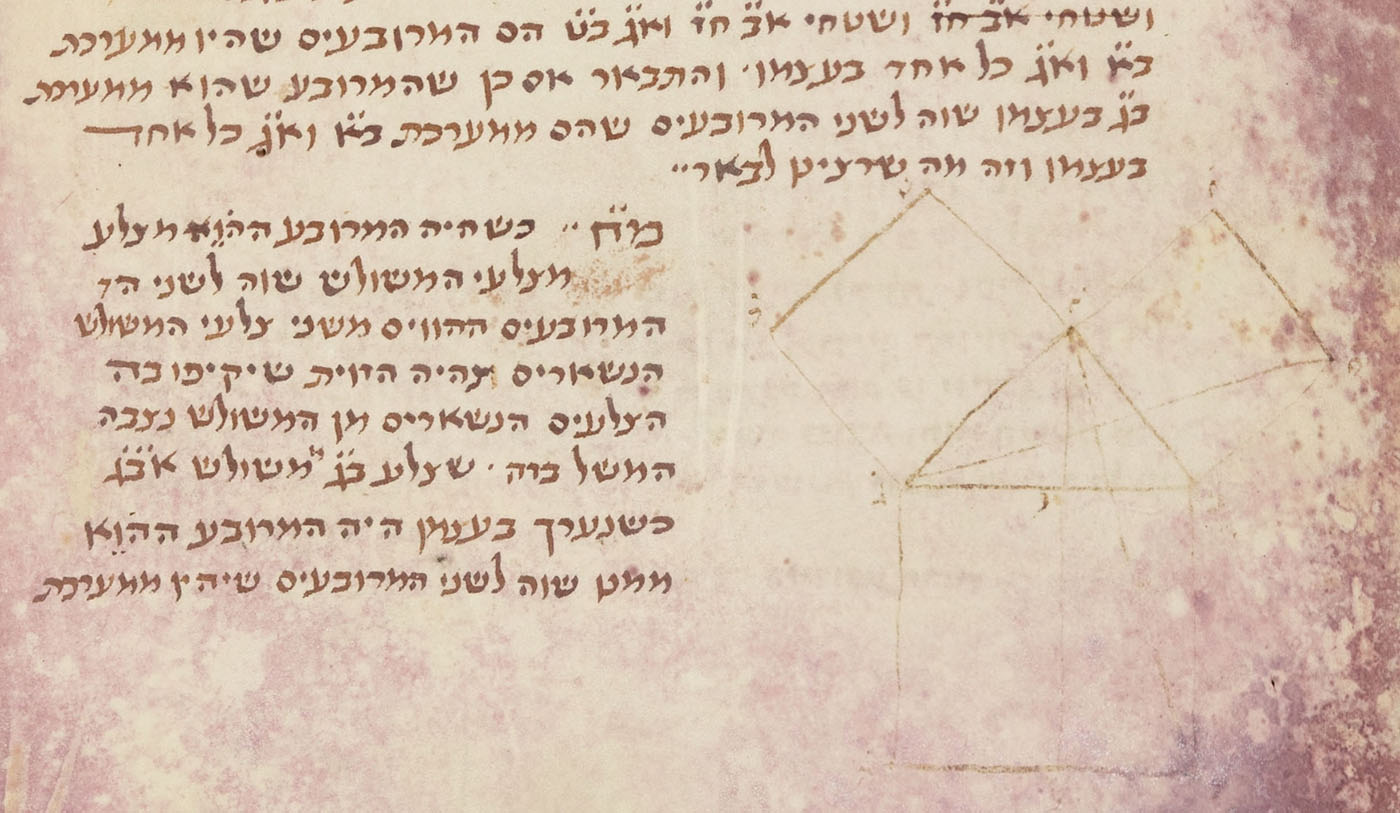 ושטחי אב חז ושטחי אב חז ואג בט הם המרובעים שהיו ממערכת
בא ואג כל אחד בעצמו · והתבאר אם כן שהמרובע שהוא ממערכת
בג בעצמו שוה לשני המרובעים שהם ממערכת בא ואג כל אחד
בעצמו וזה מה שרצינו לבאר ··
מח ·· כשהיה המרובע ההוא מצלע
מצלעי המשולש שוה לשני הד
המרובעים ההווים משני צלעי המשולש
הנשארים תהיה הזוית שיקיפו בה
הצלעים הנשארים מן המשולש נצבה
המשל בזה · שצלע בג ממשולש אבג
כשנערך בעצמו היה המרובע ההוא
ממנו שוה לשני המרובעים שיהיו ממערכת